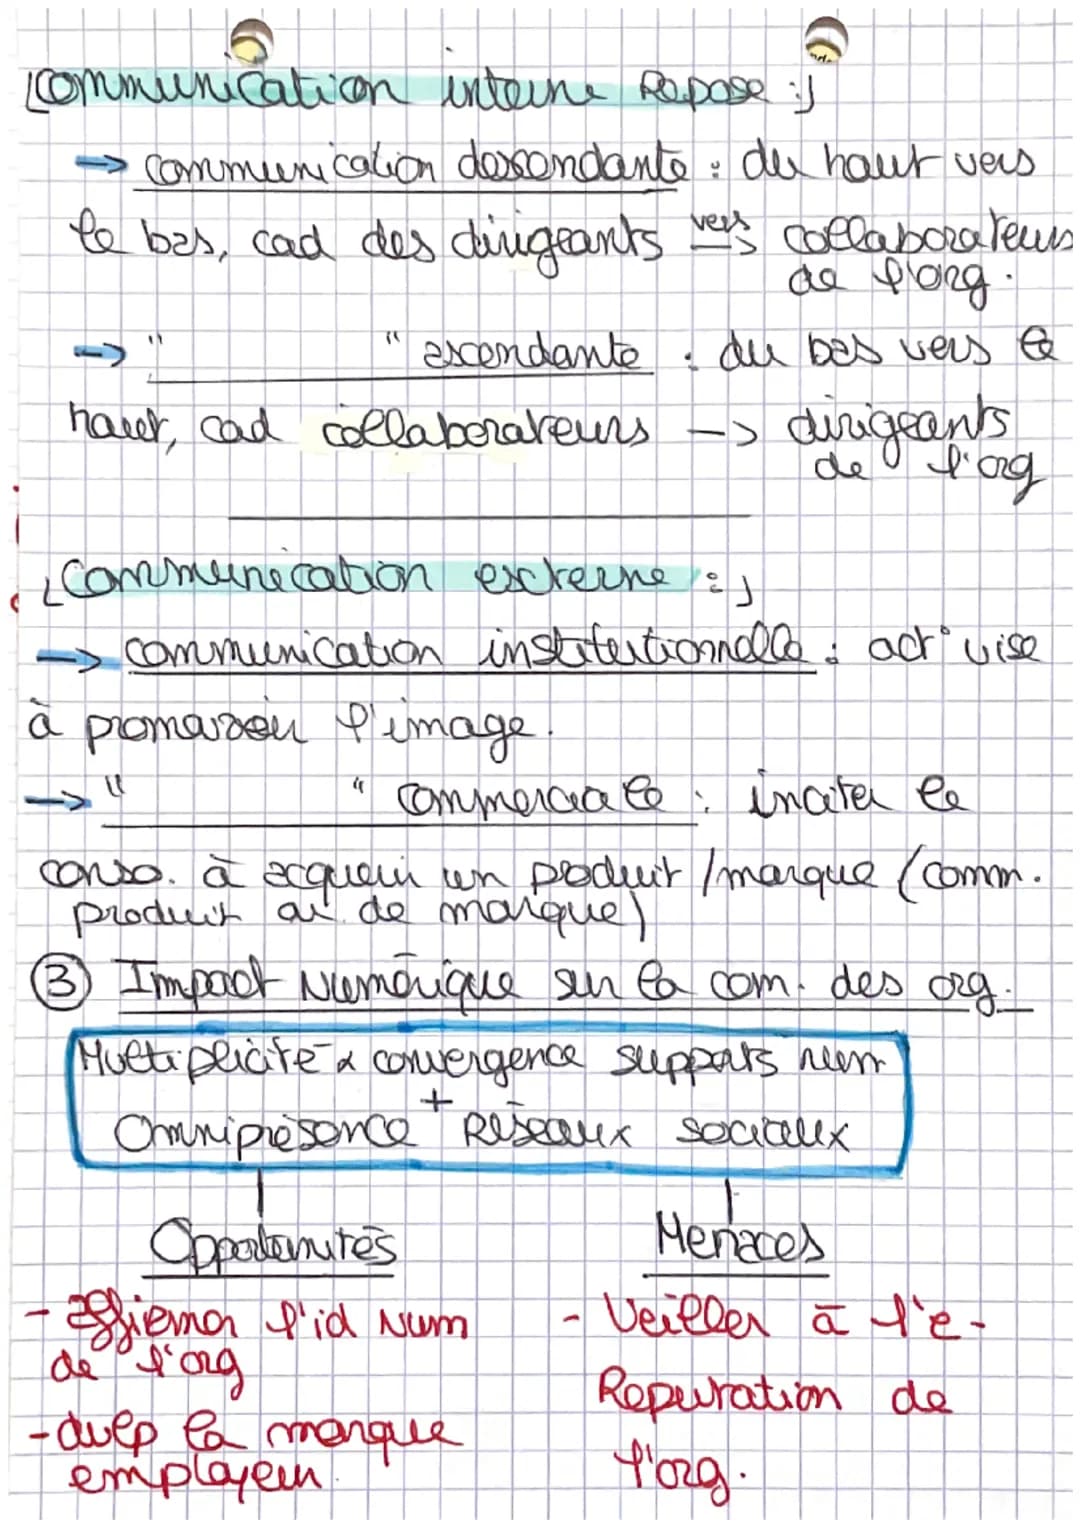 [Communication interne Repose :]
→ communication descendante : du haut vers
le bas, cad des dirigeants vers → collaborateurs
de l'org.
→ " " ascendante : du bas vers le
haut, cad collaborateurs -> dirigeants
de l'org
[Communication externe :]
→ communication institutionnelle : act° vise
à promouvoir l'image.
→ " " commerciale : inciter le
conso. à acquerir un produit / marque (comm.
produit ou de marque)
③ Impact Numérique sur la com. des org.
Multiplicité & convergence supports num
+
Omniprésence Réseaux sociaux
Opportunités Menaces
- affirmer l'id Num
de l'org
- dvlp la marque
employeur.
- Veiller à l'e-
Reputation de
l'org.